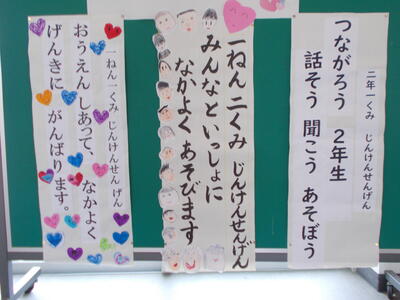 二年一くみ　じんけんせんげん
つながろう　2年生
話そう　聞こう　あそぼう
一ねん　二くみ　じんけんせんげん
みんなと　いっしょに
なかよく　あそびます
一ねん一くみ　じんけんせんげん
おうえん　しあって、なかよく
げんきに　がんばります。